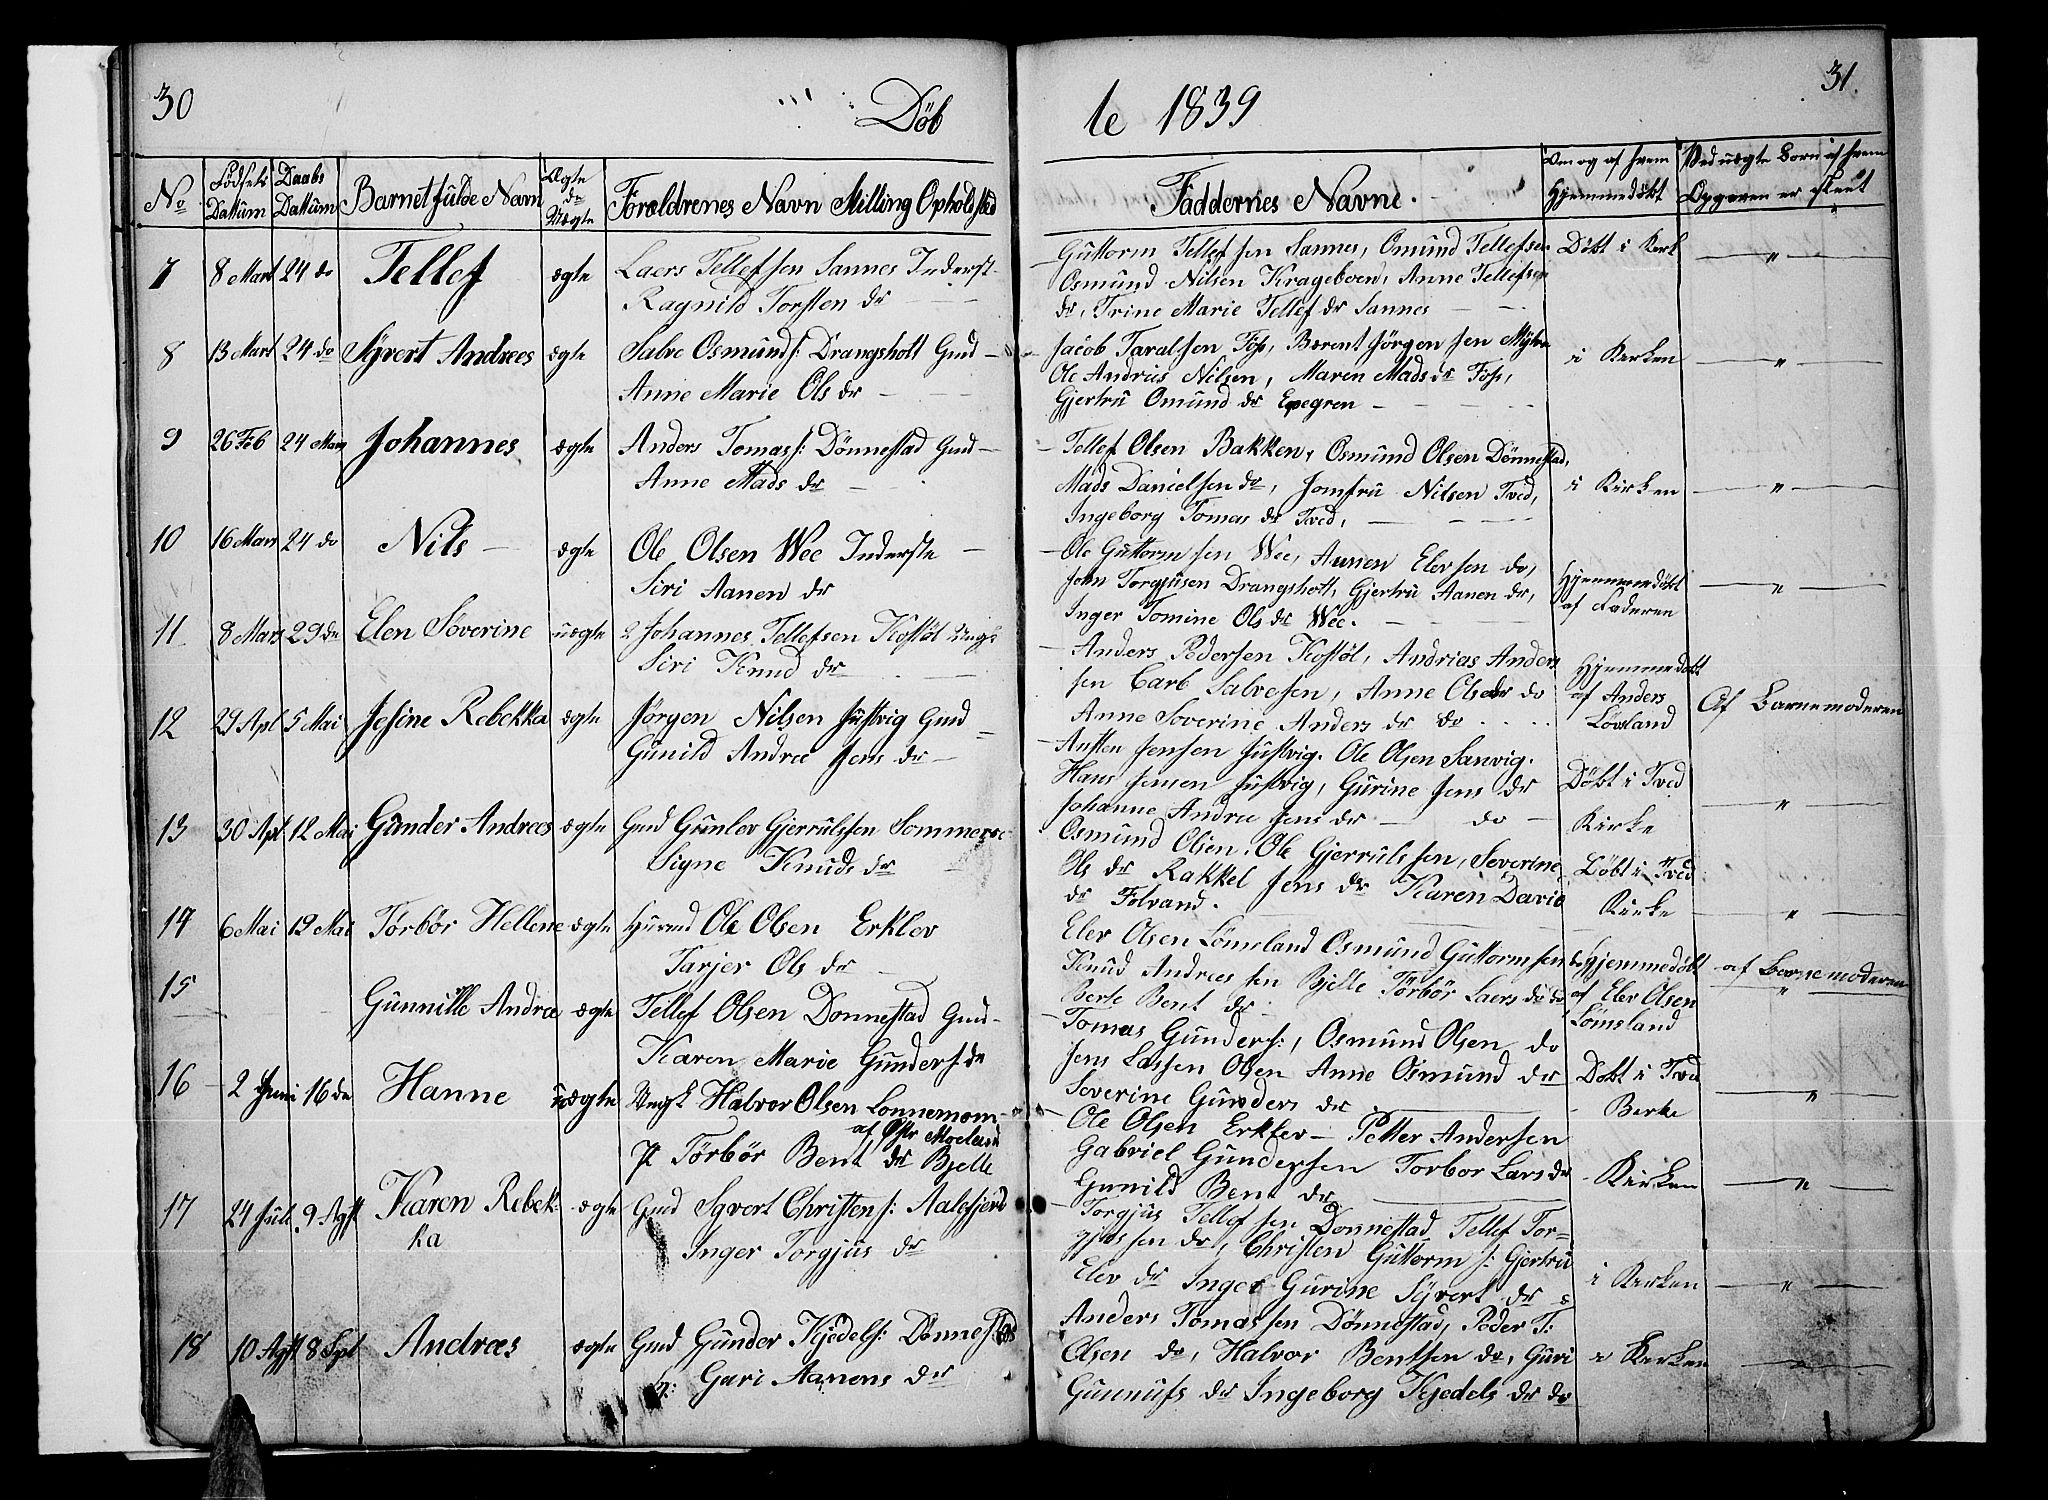 30
Döb
No
Födsels Dattum
Daabs Dattum
Barnet fulde Navn
Ægte do Uægte
Forældrenes Navn Stilling Opholdsted
7 8 Mart 24 do Tellef ægte Laers Tellefsen Sannes Inderst
Ragnild Torsten dr
8 13 Mart 24 do Syvert Andrees ægte Salve Osmunds: Drangsholt Gmd
Anne Marie Ols dr
9 26 Feb 24 Mars Johannes ægte Anders Tomass: Dönnestad Gmd
Anne Mads dr
10 16 Mars 24 do Nils ægte Ole Olsen Wee Inderste
Siri Aanen dr
11 8 Mars 29 do Elen Söverine uægte Johannes Tellefsen Kostöl Ungk
Siri Knud dr
12 29 Apl 5 Mai Jesine Rebekka ægte Jörgen Nilsen Justvig Gmd
Gunild Andrea Jens dr
13 30 Apl 12 Mai Gunder Andreas ægte Gmd Gunlev Gjerrulssen Sommerse
Signe Knuds dr
14 6 Mai 19 Mai Törbör Hellene ægte Huusmd Ole Olsen Erklev
Tarjer Ols dr
15 Gunnille Andrea ægte Tellef Olsen Donnestad Gmd
Karen Marie Gunders dr
16 2 Juni 16 do Hanne uægte Ungk Halvor Olsen Lonnemom
af Østr Moeland
P Törbör Bent dr Bjelle
17 24 Juli 9 Agst Karen Rebek- ægte Gmd Syvert Christens: Aalefjerd
ka Inger Torgjus dr
18 10 Agst 8 Spt Andreas ægte Gmd Gunder Kjedels: Dönnestad
Guri Aanens dr
te 1839
31.
Faddernes Navne.
Om og af hvem Hjemmedöbt
Ved uægte Born af hvem Opgaven er skeet
Guttorm Tellefsen Sannes, Omund Tellefsen Döbt i Kerk
Osmund Nilsen Krageboen, Anne Tellefsen
dr, Trine Marie Tellef dr Sannes
Jacob Taralsen Fös, Bærent Jörgensen Myhre
Ole Andrius Nilsen, Maren Mads dr Fös, i Kerken
Gjertru Omund dr Epegren
Tellef Olsen Bakken, Osmund Olsen Dönnestad,
Mads Danielsen do, Jomfru Nilsen Tved, i Kirken
Ingeborg Tomas dr Tved,
Ole Guttormsen Wee, Aanen Elevsen do,
John Torgjusen Drangsholt, Gjertru Aanen dr, Hjemmedöbt
Inger Tomine Ols dr Wee. af Faderen
Anders Pedersen Kostöl, Andrias Anders
sen Carl Salvesen, Anne Ols dr do Hjemmedöbt af Anders
Anne Soverine Anders dr do Lövsland Af Barnemoderen
Austen Jensen Justvig. Ole Olsen Sanvig.
Hans Jensen Justvig, Gurine Jens dr Döbt i Tved
Johanne Andrea Jens dr do Kirke
Osmund Olsen. Ole Gjerrulssen, Severine
Ols dr Rakkel Jens dr Karen David Döbt i Tved
dr Folvand. Kirke
Elev Olsen Lömsland Osmund Guttormsen do
Knud Andreessen Bjelle Törbör Laers dr do Hjemmedöbt af Elev Olsen af Barnemoderen
Berte Bent dr Lömsland
Tomas Gunders:, Osmund Olsen do
Jens Lassen Olsen Anne Osmund dr Döbt i Tved
Soverine Gunders dr Kerke
Ole Olsen Erklev Petter Andersen
Gabriel Gundersen Torbor Lars dr Kirken
Gunild Bent dr
Torgjus Tellefsen Donnestad Tellef Tor=
gjussen do, Christen Guttorm s: Gjertru
Elev dr Inger Gurine Syvert dr i Kerken
Anders Tomassen Dönnestad, Peder T:
Olsen do, Halvor Bentsen do, Guri i Kerken
Gunnufs dr Ingeborg Kjedels dr do